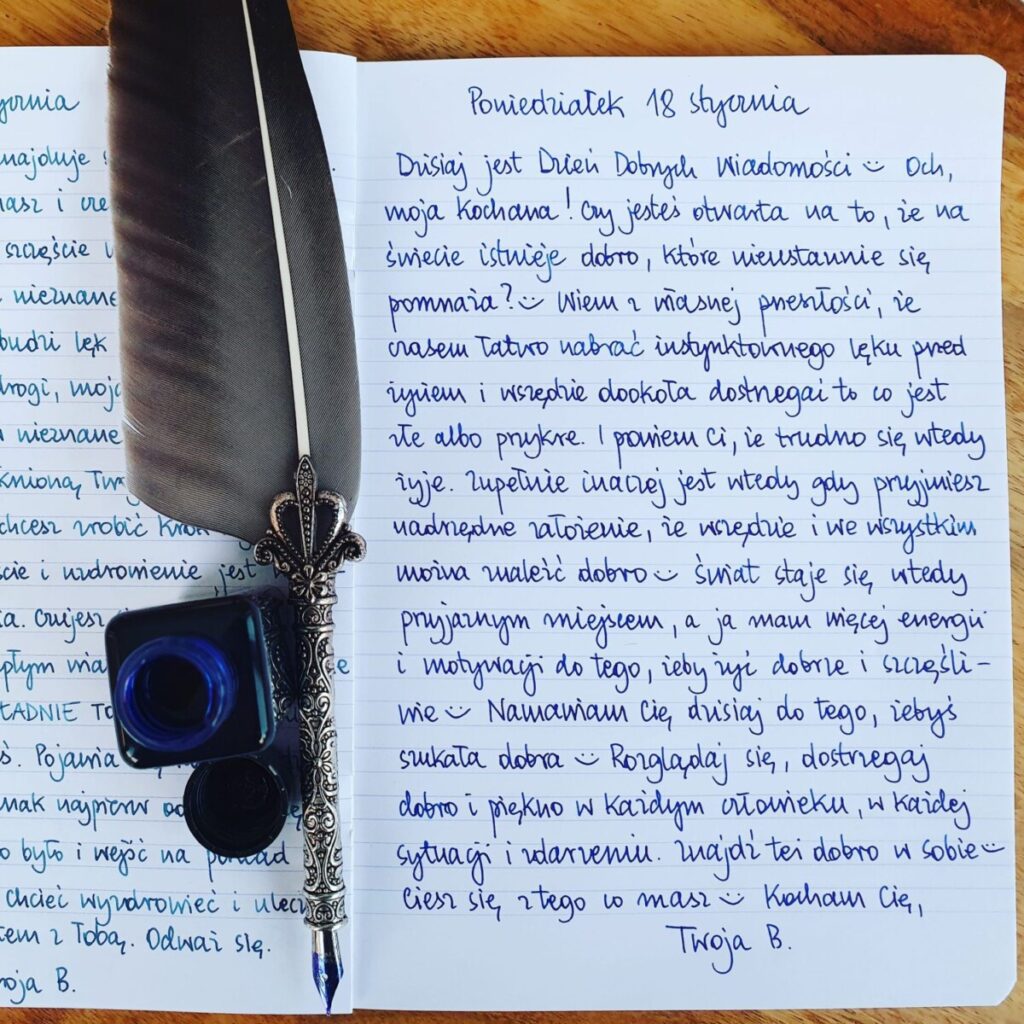 ycznia
najduje s
nasz i cze
szczęście w
nieznane
budzi lęk
drogi, moja
w nieznane
knioną Tw
chcesz zrobić krok
ście i uzdrowienie jest
ia. Czujesz
płym
ŁADNIE TO
ś. Pojawia
nak najpierw od
o było i wejść na ponad
chcieć wyzdrowieć i ulecz
tem z Tobą. Odważ się.
woja B.
Poniedziałek 18 stycznia
Dzisiaj jest Dzień Dobrych Wiadomości :) Och,
moja Kochana! Czy jesteś otwarta na to, że na
świecie istnieje dobro, które nieustannie się
pomnaża? :) Wiem z własnej przeszłości, że
czasem łatwo nabrać instynktownego lęku przed
życiem i wszędzie dookoła dostrzegać to co jest
złe albo przykre. I powiem Ci, że trudno się wtedy
żyje. Zupełnie inaczej jest wtedy gdy przyjmiesz
nadrzędne założenie, że wszędzie i we wszystkim
można znaleźć dobro :) Świat staje się wtedy
przyjaznym miejscem, a ja mam więcej energii
i motywacji do tego, żeby żyć dobrze i szczęśli-
wie :) Namawiam Cię dzisiaj do tego, żebyś
szukała dobra :) Rozglądaj się, dostrzegaj
dobro i piękno w każdym człowieku, w każdej
sytuacji i zdarzeniu. Znajdź też dobro w sobie :)
Ciesz się z tego co masz :) Kocham Cię,
Twoja B.